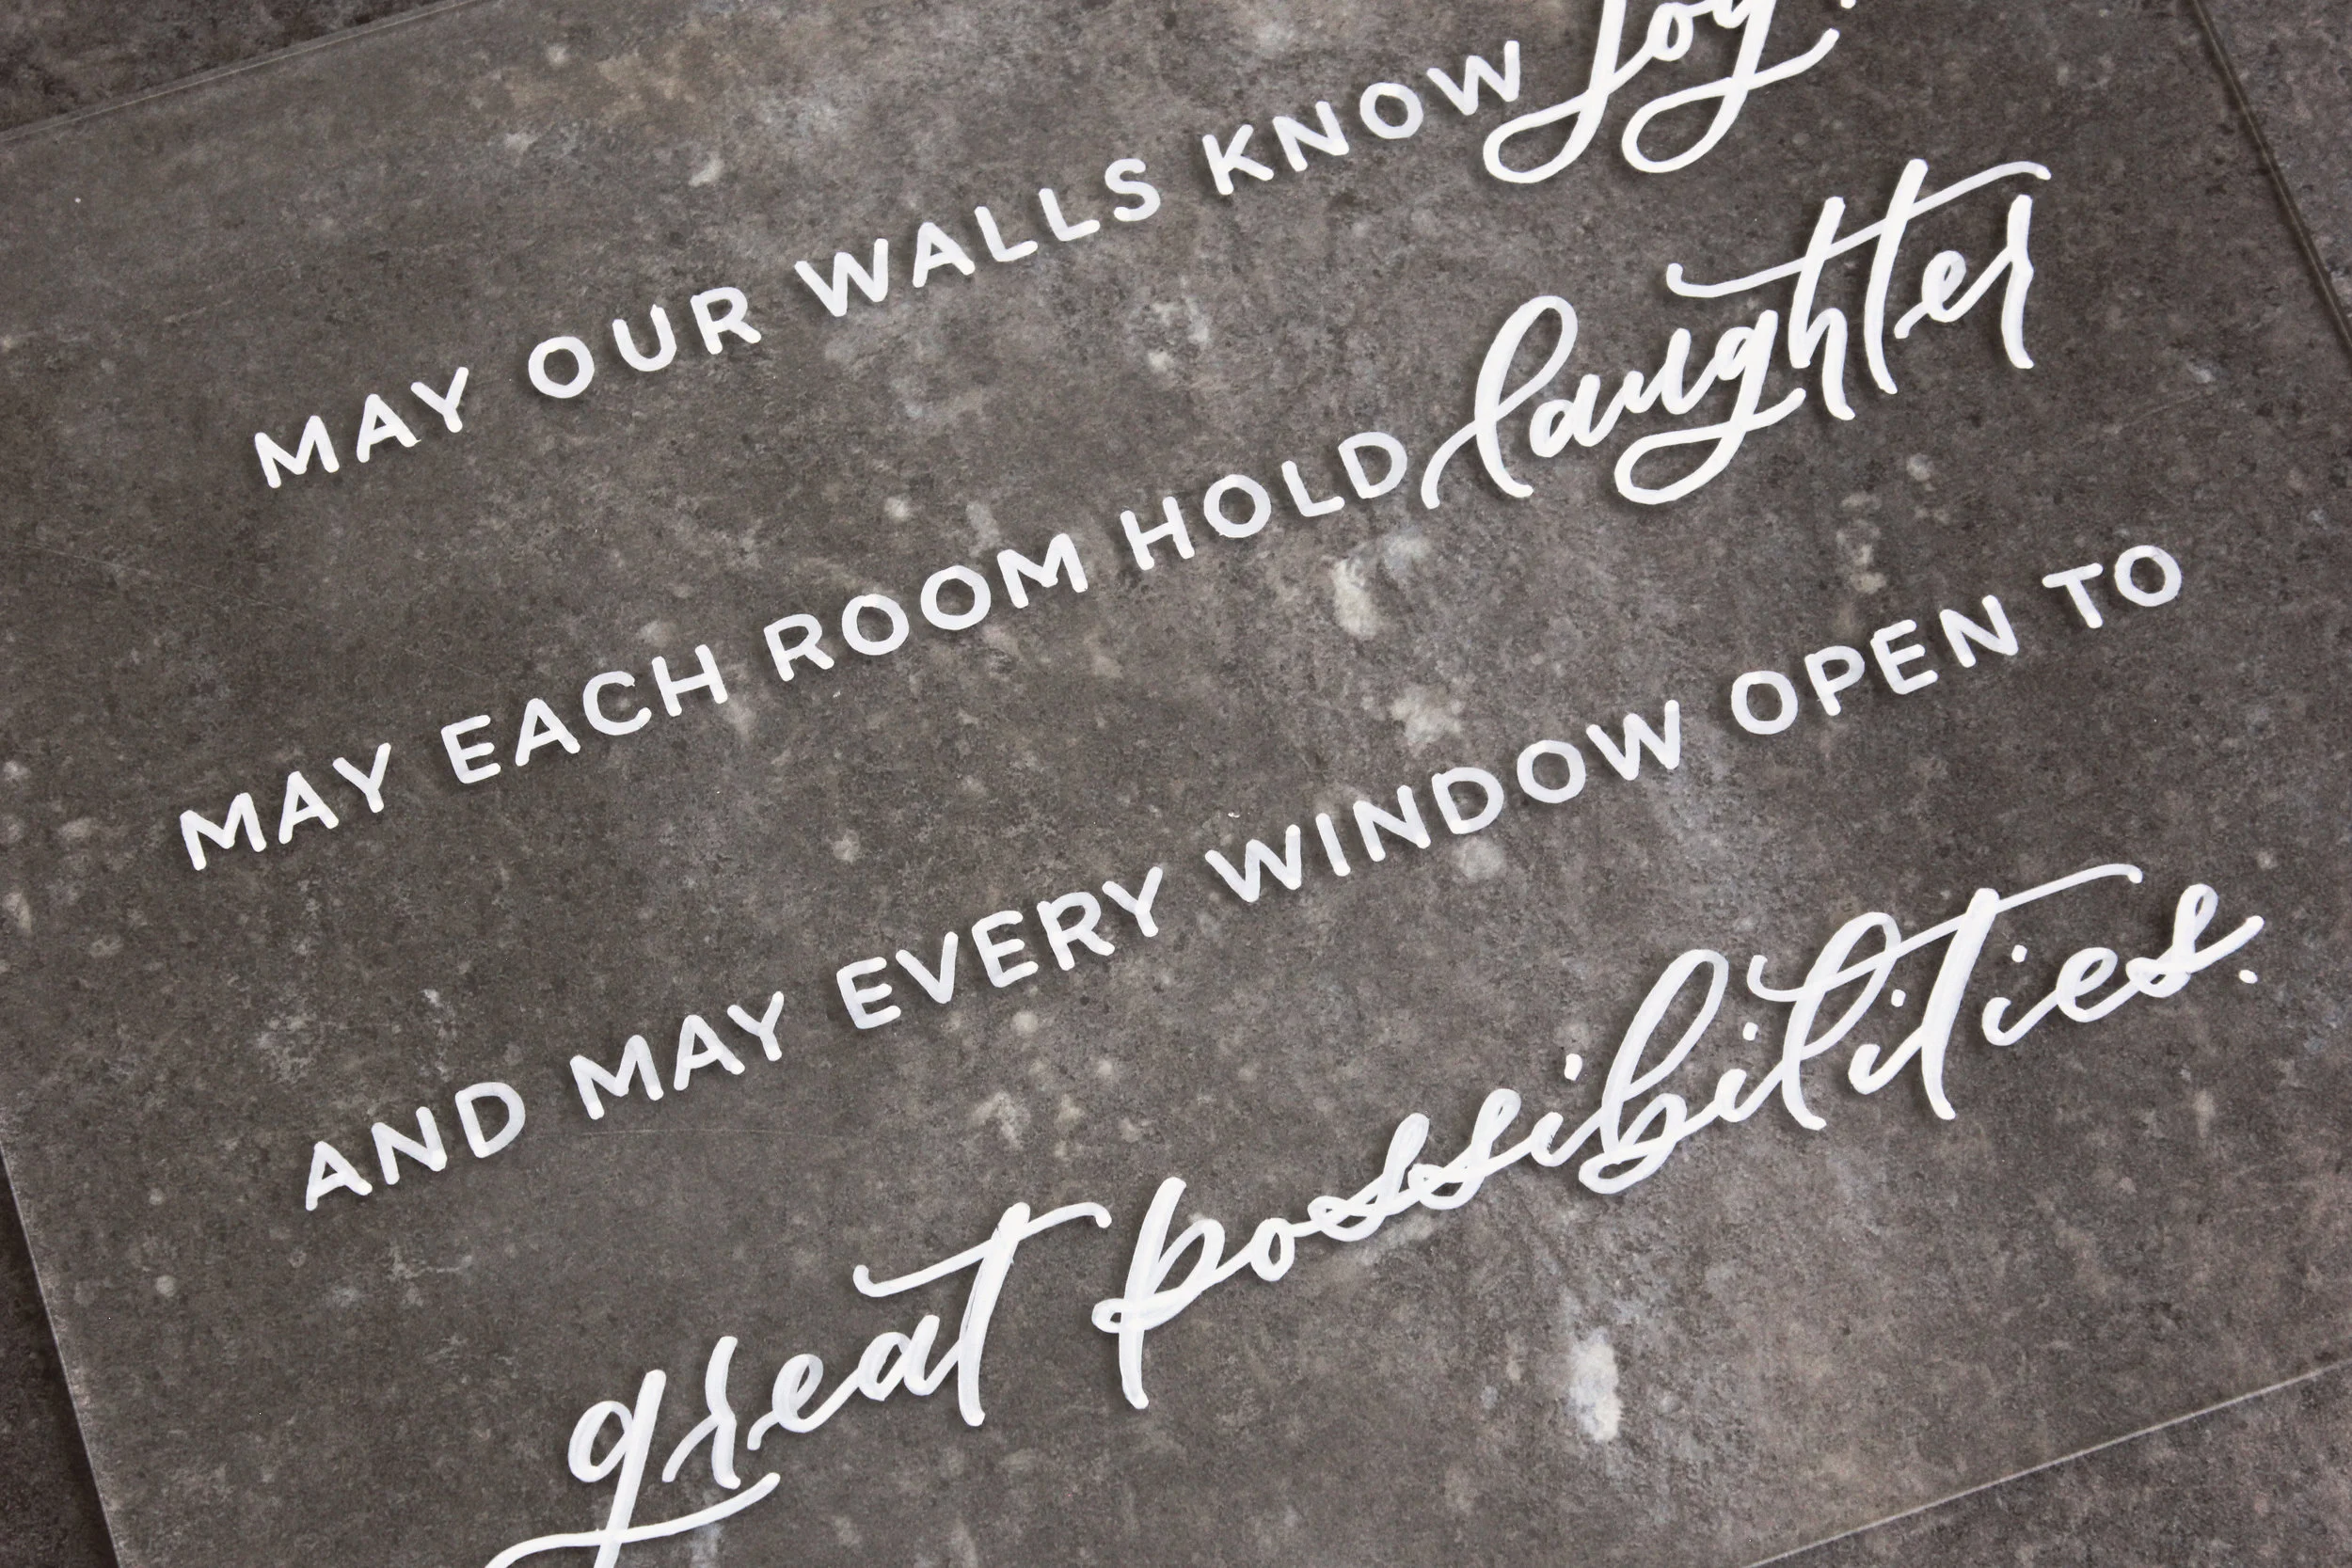 MAY OUR WALLS KNOW joy,
MAY EACH ROOM HOLD laughter
AND MAY EVERY WINDOW OPEN TO
great possibilities.